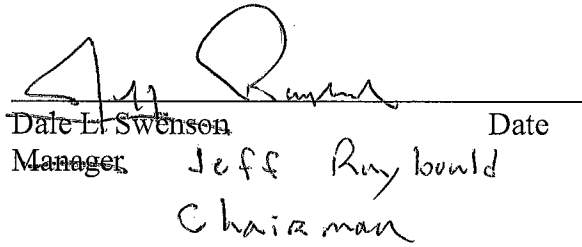 Jeff Raybould
Dale L. Swenson Date
Manager Jeff Raybould
Chairman